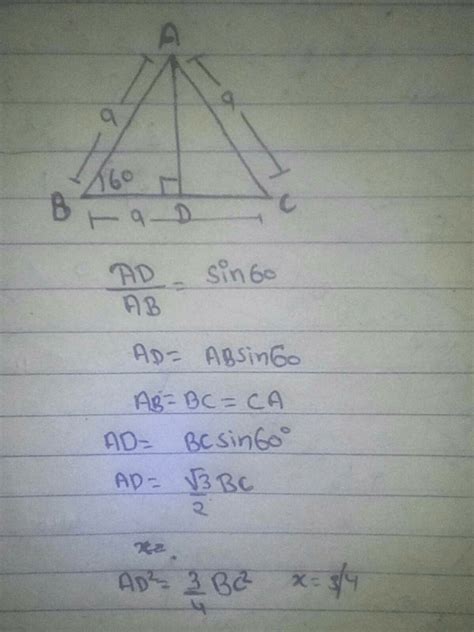 A
a a
60
B a D C
AD/AB = sin60
AD = ABsin60
AB = BC = CA
AD = BCsin60°
AD = √3/2 BC
x=.
AD² = 3/4 BC² x = 3/4